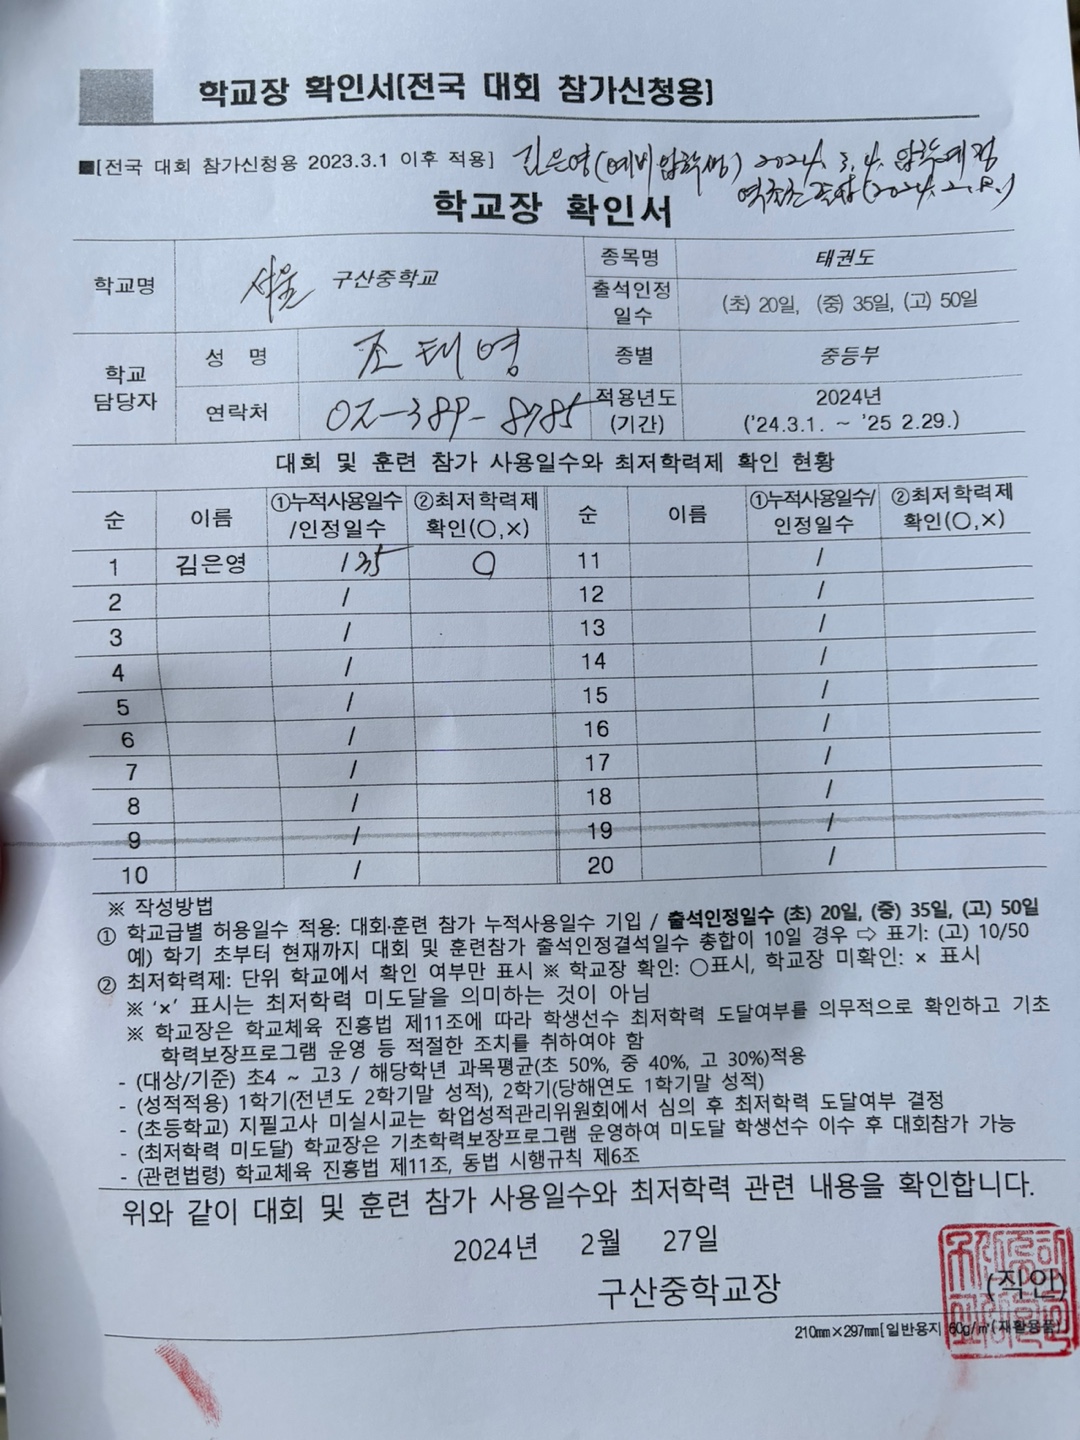 학교장 확인서[전국 대회 참가신청용]
■[전국 대회 참가신청용 2023.3.1 이후 적용] 김은영(예비입학생) 2024. 3. 4. 입학예정
(2024. 2. 8.)
학교장 확인서
학교명 서울 구산중학교 종목명 태권도
출석인정 일수 (초) 20일, (중) 35일, (고) 50일
학교 담당자 성 명 조태영 종별 중등부
연락처 02-389-8785 적용년도 (기간) 2024년 ('24.3.1. ~ '25 2.29.)
대회 및 훈련 참가 사용일수와 최저학력제 확인 현황
순 이름 ①누적사용일수/인정일수 ②최저학력제 확인(○,×) 순 이름 ①누적사용일수/인정일수 ②최저학력제 확인(○,×)
1 김은영 /35 ○ 11 /
2 / 12 /
3 / 13 /
4 / 14 /
5 / 15 /
6 / 16 /
7 / 17 /
8 / 18 /
9 / 19 /
10 / 20 /
※ 작성방법
① 학교급별 허용일수 적용: 대회·훈련 참가 누적사용일수 기입 / 출석인정일수 (초) 20일, (중) 35일, (고) 50일
예) 학기 초부터 현재까지 대회 및 훈련참가 출석인정결석일수 총합이 10일 경우 ⇨ 표기: (고) 10/50
② 최저학력제: 단위 학교에서 확인 여부만 표시 ※ 학교장 확인: ○표시, 학교장 미확인: × 표시
※ '×' 표시는 최저학력 미도달을 의미하는 것이 아님
※ 학교장은 학교체육 진흥법 제11조에 따라 학생선수 최저학력 도달여부를 의무적으로 확인하고 기초
학력보장프로그램 운영 등 적절한 조치를 취하여야 함
- (대상/기준) 초4 ~ 고3 / 해당학년 과목평균(초 50%, 중 40%, 고 30%)적용
- (성적적용) 1학기(전년도 2학기말 성적), 2학기(당해연도 1학기말 성적)
- (초등학교) 지필고사 미실시교는 학업성적관리위원회에서 심의 후 최저학력 도달여부 결정
- (최저학력 미도달) 학교장은 기초학력보장프로그램 운영하여 미도달 학생선수 이수 후 대회참가 가능
- (관련법령) 학교체육 진흥법 제11조, 동법 시행규칙 제6조
위와 같이 대회 및 훈련 참가 사용일수와 최저학력 관련 내용을 확인합니다.
2024년 2월 27일
구산중학교장 (직인)
210㎜×297㎜[일반용지 60g/㎡(재활용품)]